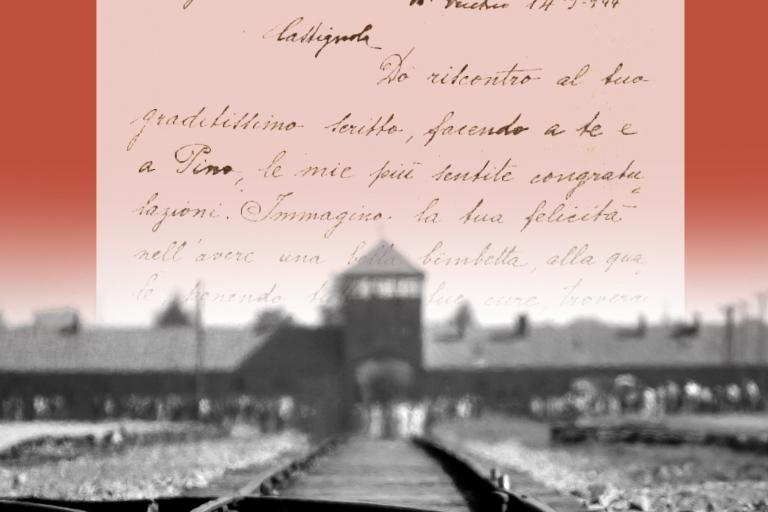 Vecchio 14-3-944
Castignola
Dò riscontro al tuo
graditissimo scritto, facendo a te e
a Pino, le mie più sentite congratu
lazioni. Immagino la tua felicità
nell'avere una bella bimbetta, alla qua
le ponendo tue cure, troverai